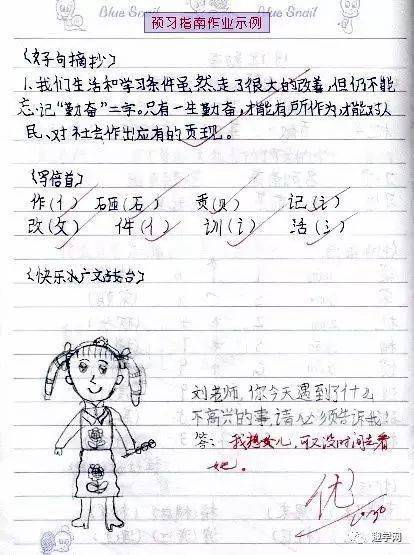 Blue Snail
Blue Snail
预习指南作业示例
《好句摘抄》
1.我们生活和学习条件虽然走了很大的改善,但仍不能
忘记“勤奋”二字。只有一生勤奋,才能有所作为才能对人
民、对社会作出应有的贡现。
《写偏首》
作(亻) 砸(石) 贡(贝) 记(讠)
改(攵) 件(亻) 训(讠) 活(氵)
《快乐小广
台》
刘老师,你今天遇到了什么
不高兴的事,请必须告诉我!
答:我想女儿,可又没时间去看
她。
优
趣学网